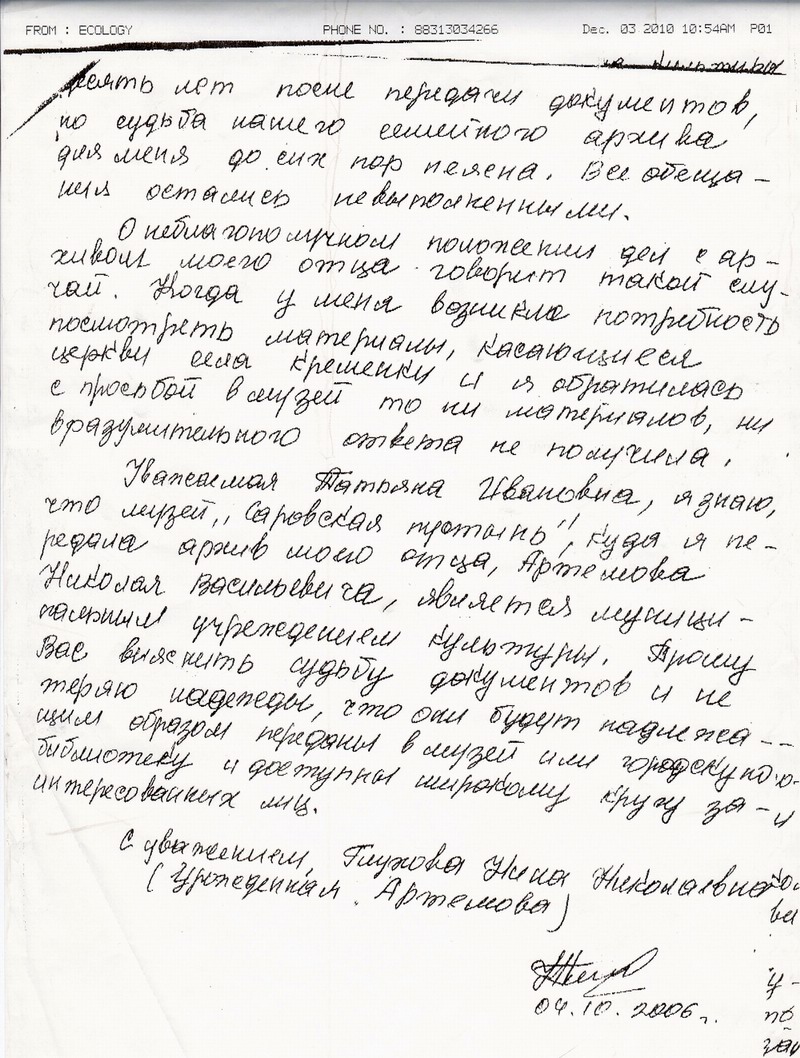 FROM : ECOLOGY PHONE NO. : 88313034266 Dec. 03 2010 10:54AM P01
лет после передачи документов,
но судьба нашего семейного архива
для меня до сих пор неясна. Все обеща-
ния остались невыполненными.
О неблагополучном положении дел с ар-
хивом моего отца говорит такой слу-
чай. Когда у меня возникла потребность
посмотреть материалы, касающиеся
церкви села Кременки и я обратилась
с просьбой в музей то ни материалов, ни
вразумительного ответа не получила.
Уважаемая Татьяна Ивановна, я знаю,
что музей „Саровская пустынь", куда я пе-
редала архив моего отца, Артемова
Николая Васильевича, является муници-
пальным учреждением культуры. Прошу
Вас выяснить судьбу документов и не
теряю надежды, что они будут надлежа-
щим образом переданы в музей или городскую
библиотеку и доступны широкому кругу за-
интересованных лиц.
С уважением, Глухова Нина Николаевна
(Урожденная Артемова)
04.10.2006г.